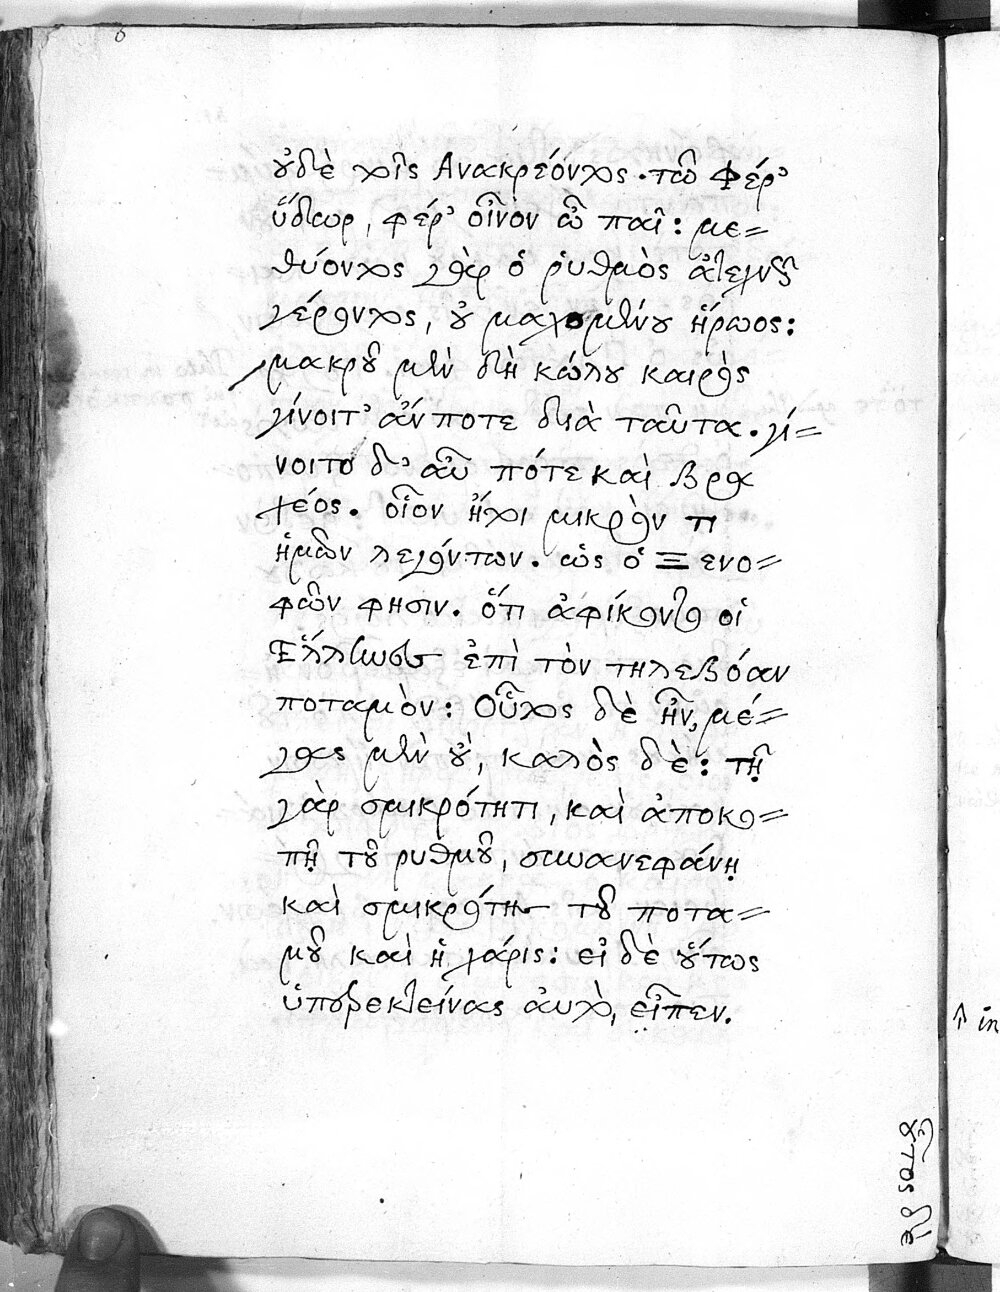 οὐδὲ τοῖς Ἀνακρέοντος. τῶ φέρ'
ὕδωρ, φέρ' οἶνὸν ὦ παῖ: με=
θύοντος γὰρ ὁ ῥυθμὸς ἀτεχνῶς
γέροντος, οὐ μαχομένου ἥρωος:
μακροῦ μὲν δὴ κώλου καιρὸς
γίνοιτ' ἄν ποτε διὰ ταῦτα. γί=
νοιτο δ' αὖ πότε καὶ βρα
χέος. οἷον ἤτοι μικρόν τι
ἡμῶν λεγόντων. ὡς ὁ Ξενο=
φῶν φησιν. ὅτι ἀφίκοντο οἱ
Ἕλληνες ἐπὶ τὸν τηλεβόαν
ποταμὸν: Οὗτος δὲ ἦν, μέ=
γας μὲν οὔ, καλὸς δὲ: τῇ
γὰρ σμικρότητι, καὶ ἀποκο=
πῇ τοῦ ρυθμοῦ, συνανεφάνη
καὶ σμικρότης τοῦ ποτα=
μοῦ καὶ ἡ χάρις: εἰ δὲ οὕτως
ὑπερεκτείνας αὐτὸ, εἶπεν.
ὅστις δὲ